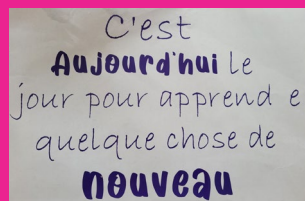 C'est
Aujourd'hui le
jour pour apprend e
quelque chose de
nouveau